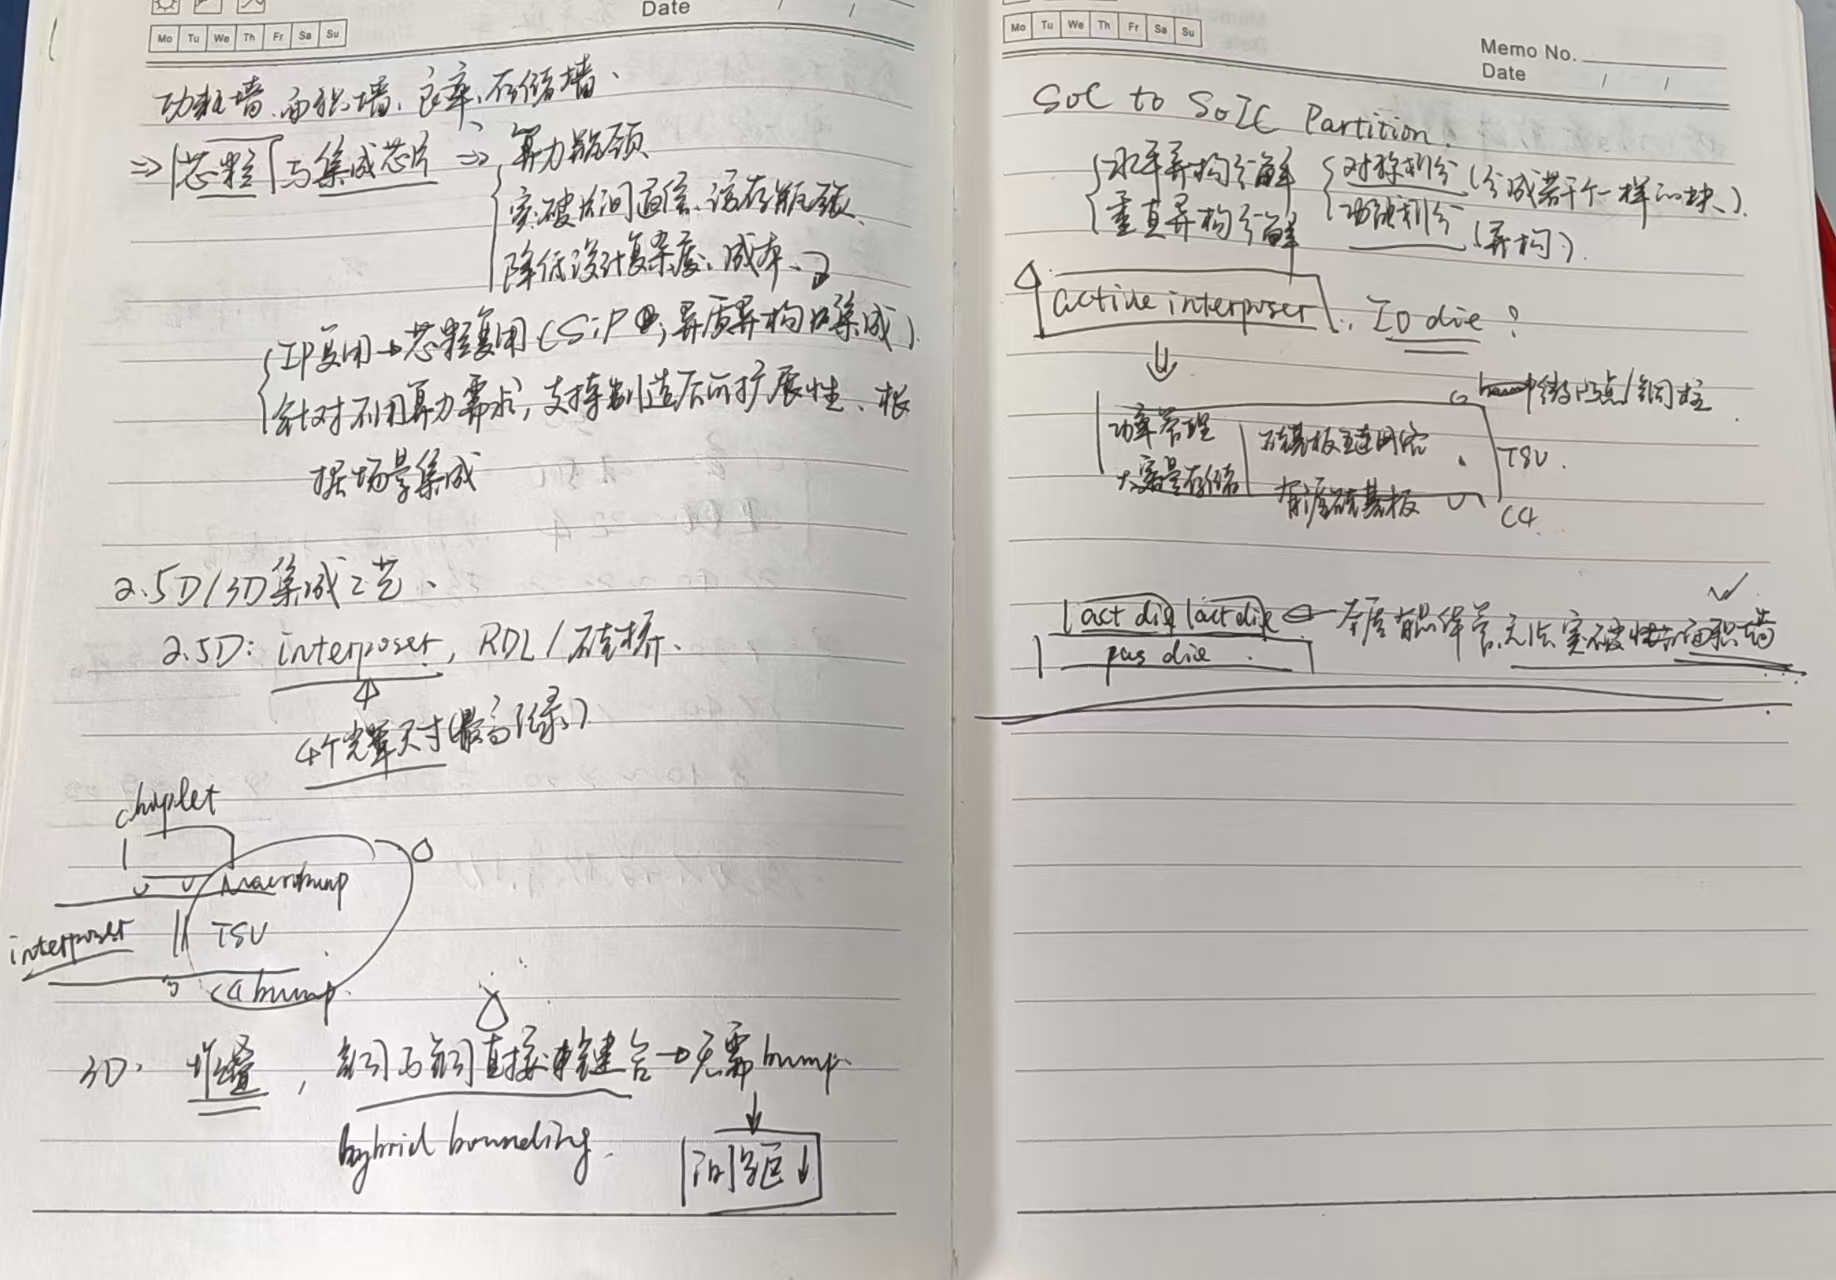 Date / /
Mo Tu We Th Fr Sa Su
功耗墙、面积墙、良率、存储墙、
⇒ 芯粒 与集成芯片 ⇒ 算力瓶颈
突破片间通信、访存瓶颈、
降低设计复杂度、成本、
IP复用→芯粒复用(SiP,异质异构的集成)
针对不同算力需求,支持制造后可扩展性、根
据场景集成
2.5D/3D集成工艺、
2.5D: interposer, RDL/硅桥、
4个完整尺寸(最高记录)
chiplet
interposer
TSV
C4 bump
3D: 堆叠, 铜与铜直接键合→无需bump
hybrid bounding
间距↓
Mo Tu We Th Fr Sa Su
Memo No.
Date / /
SoC to SoIC Partition:
水平异构分解
垂直异构分解
对称划分(分成若干个一样的块)
功能划分(异构)
active interposer, IO die?
微凸点/铜柱
功率管理
大容量存储
硅基板互连网络
有源硅基板
TSV
C4
act die act die ← 本层有晶体管,无法突破 面积墙
pas die